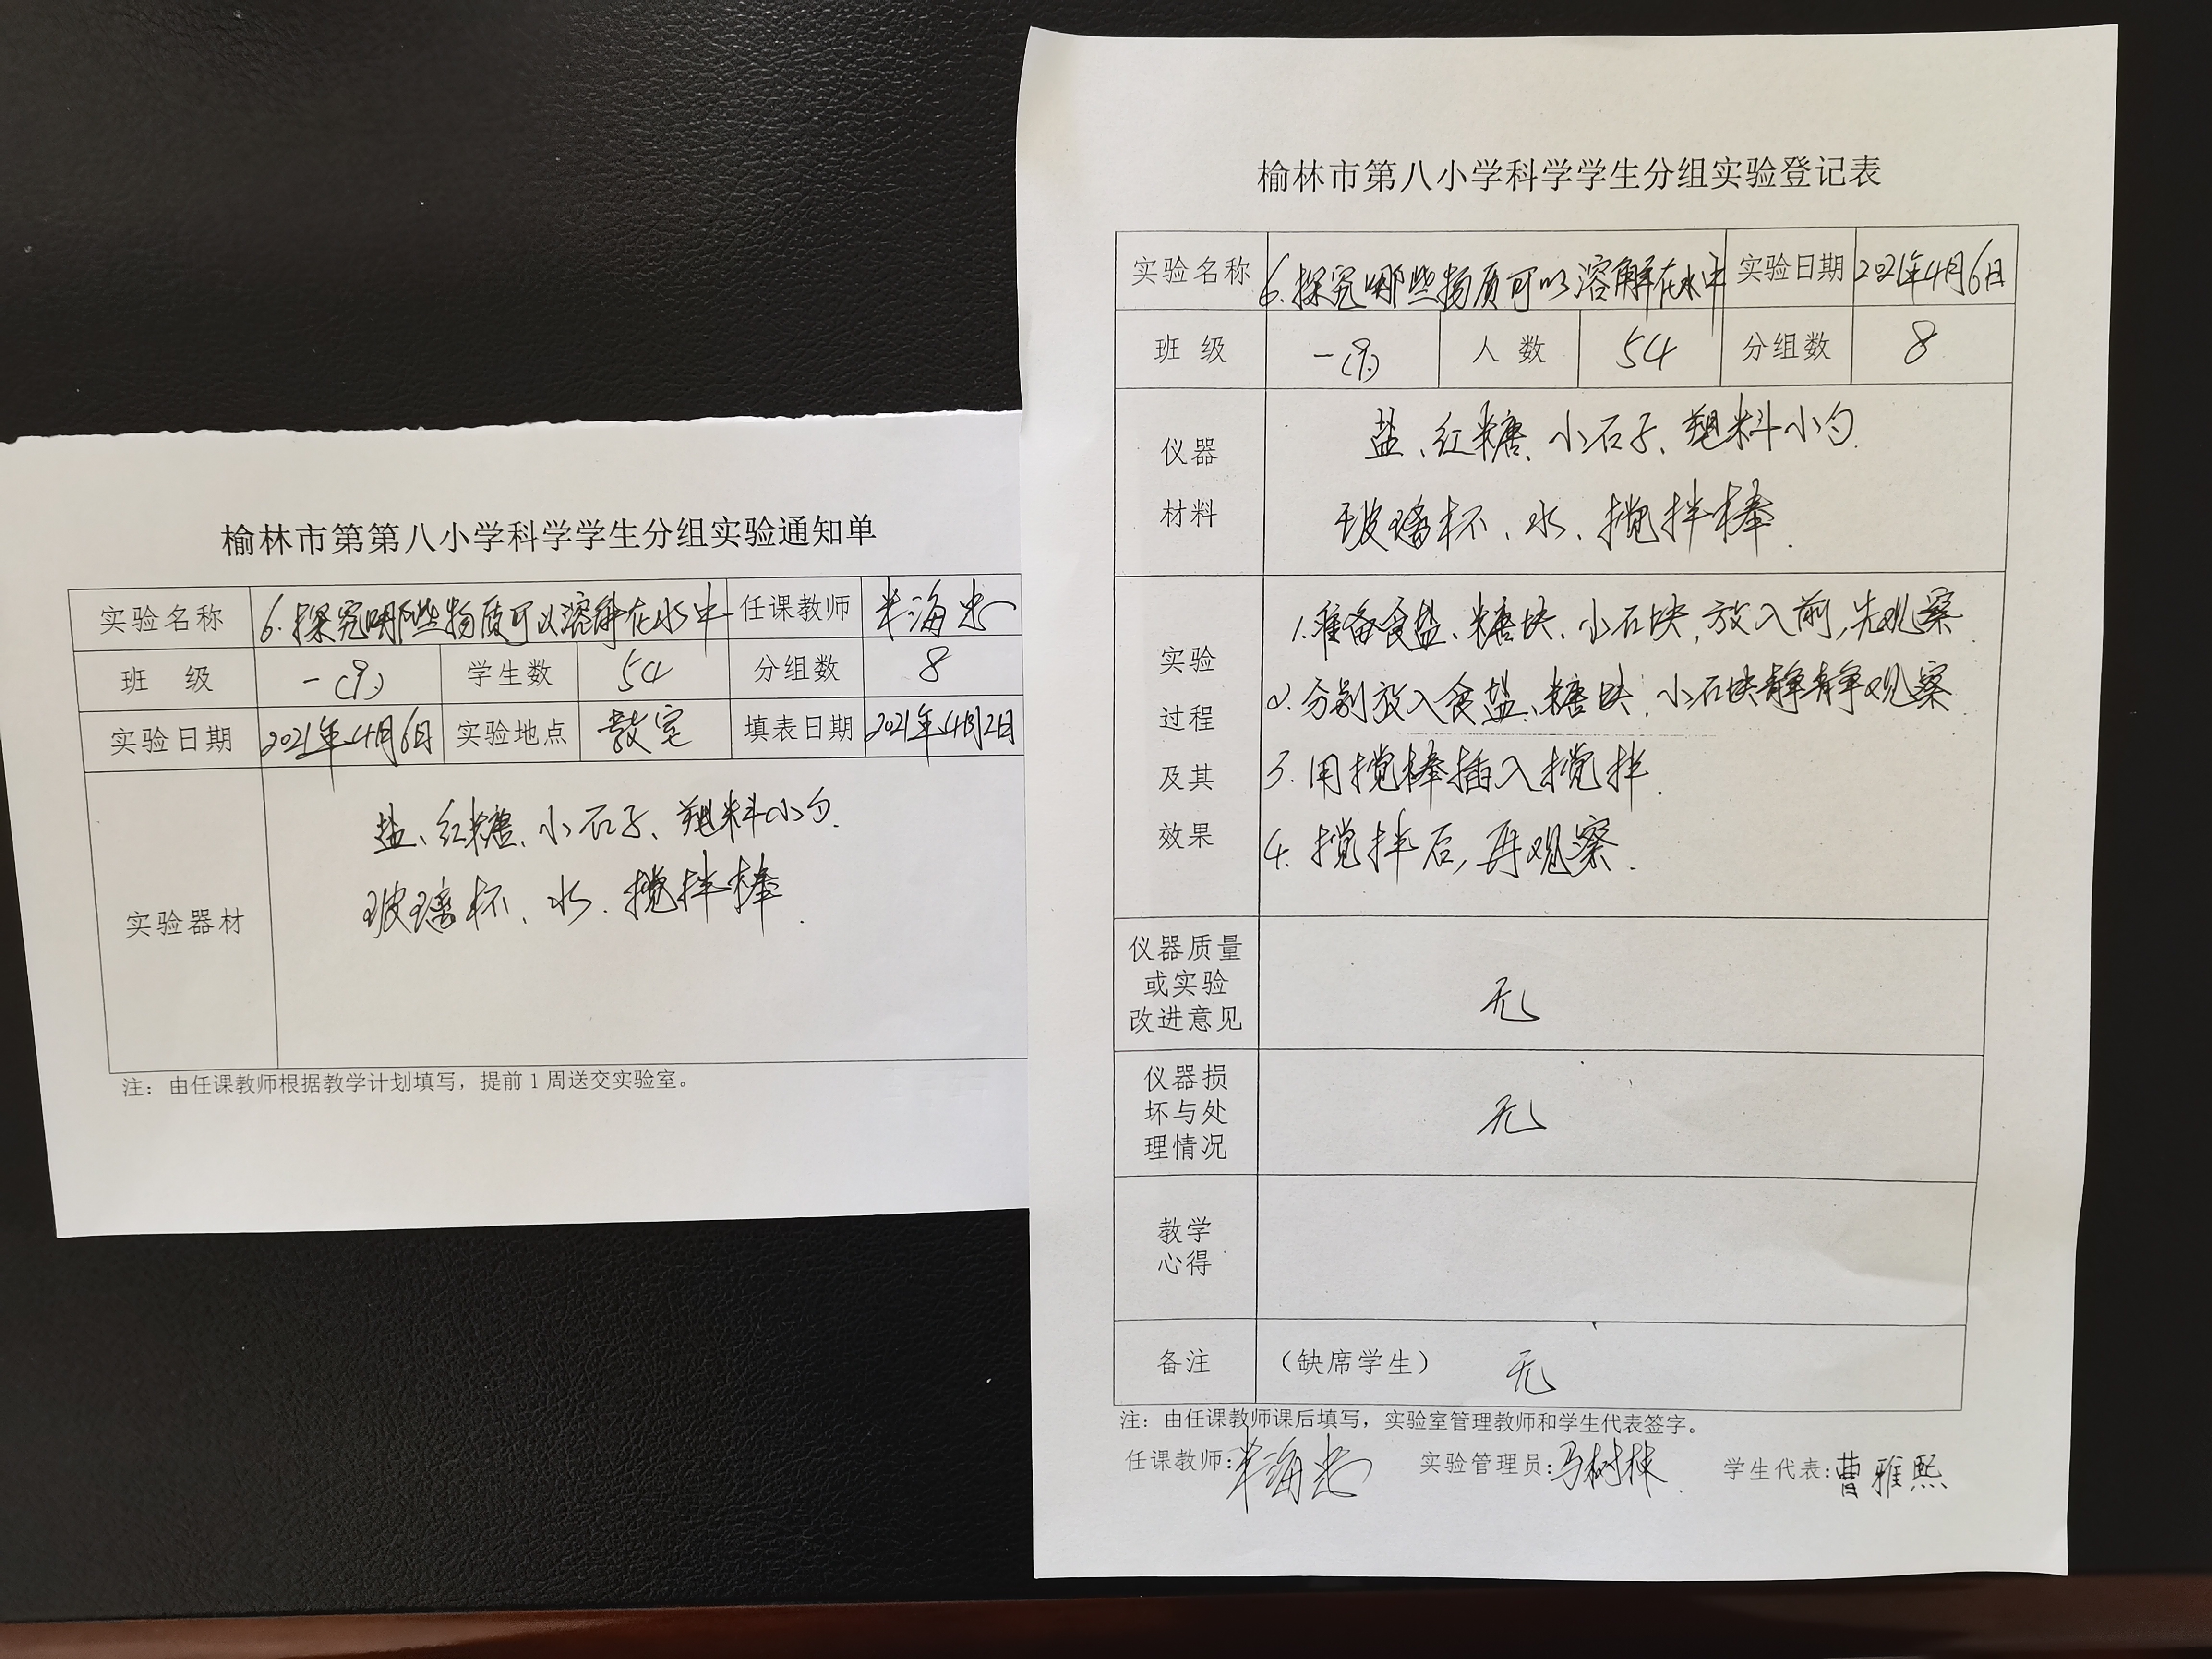 榆林市第第八小学科学学生分组实验通知单
实验名称 6.探究哪些物质可以溶解在水中 任课教师 海忠
班 级 一(9) 学生数 54 分组数 8
实验日期 2021年4月6日 实验地点 教室 填表日期 2021年4月2日
实验器材
盐、红糖、小石子、塑料小勺.
玻璃杯、水、搅拌棒.
注：由任课教师根据教学计划填写，提前1周送交实验室。
榆林市第八小学科学学生分组实验登记表
实验名称 6.探究哪些物质可以溶解在水中 实验日期 2021年4月6日
班 级 一(9) 人 数 54 分组数 8
仪器
材料
盐、红糖、小石子、塑料小勺.
玻璃杯、水、搅拌棒.
实验
过程
及其
效果
1.准备食盐、糖块、小石块,放入前,先观察.
2.分别放入食盐、糖块、小石块静静观察.
3.用搅棒插入搅拌.
4.搅拌后,再观察.
仪器质量
或实验
改进意见
无
仪器损
坏与处
理情况
无
教学
心得
备注 （缺席学生） 无
注：由任课教师课后填写，实验室管理教师和学生代表签字。
任课教师: 海忠 实验管理员:马树林 学生代表:曹雅熙